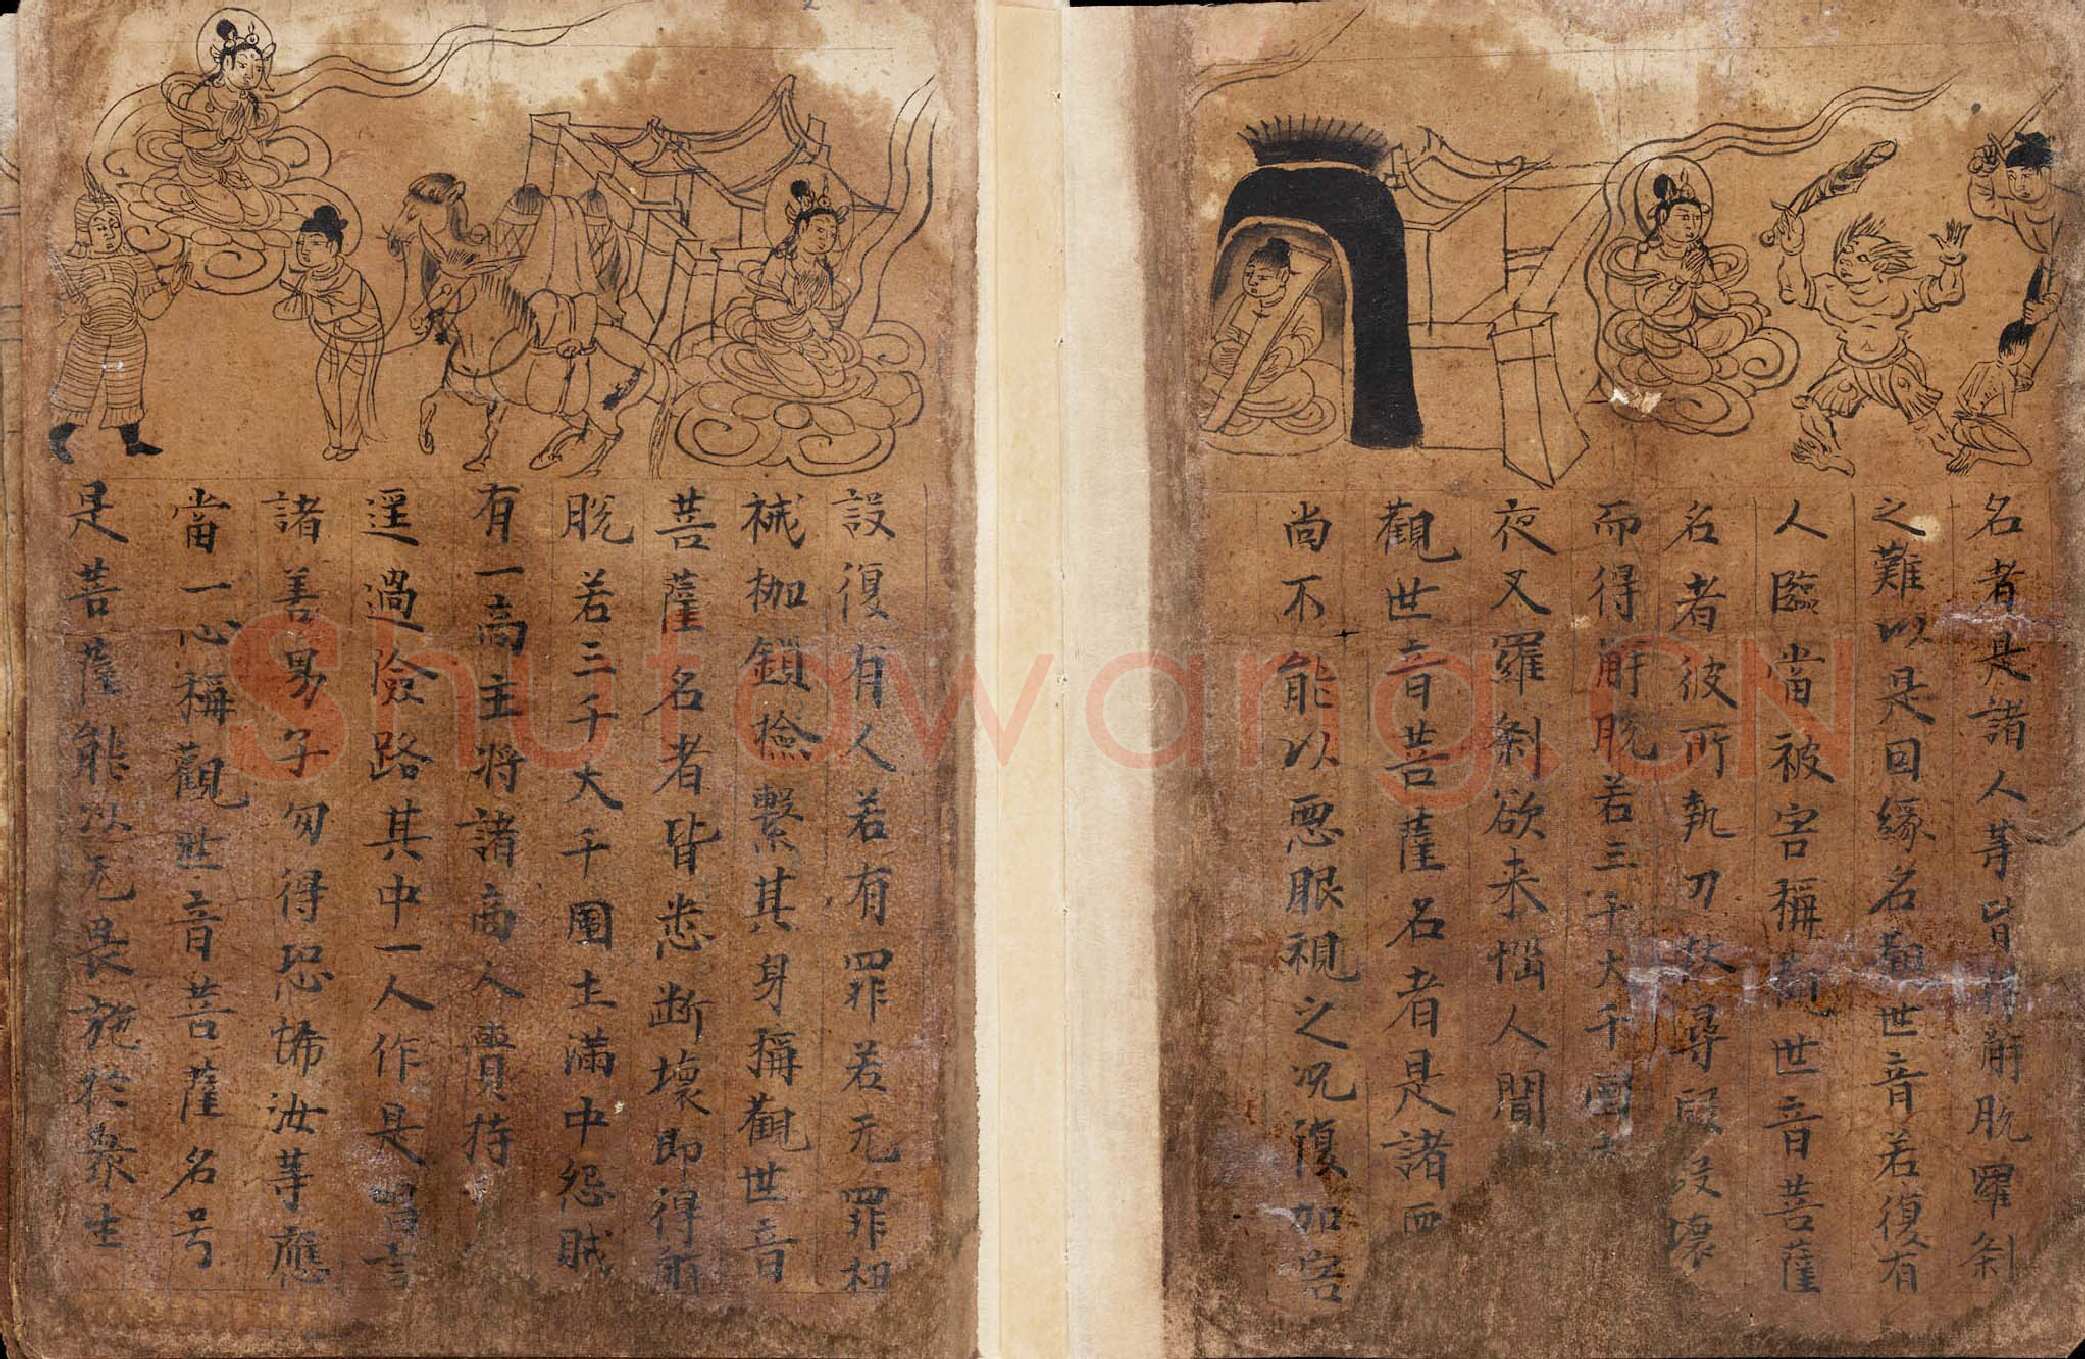 名者是諸人等皆得解脫羅剎
之難以是因緣名觀世音若復有
人臨當被害稱觀世音菩薩
名者彼所執刀杖尋段段壞
而得解脫若三千大千國土
夜叉羅剎欲来惱人聞
觀世音菩薩名者是諸
尚不能以惡眼視之况復加害
設復有人若有罪若无罪杻
械枷鎖撿繫其身稱觀世音
菩薩名者皆悉斷壞即得解
脫若三千大千國土滿中怨賊
有一商主将諸商人賷持
逕過險路其中一人作是唱言
諸善男子勿得恐怖汝等應
當一心稱觀世音菩薩名号
是菩薩能以无畏施於衆生
Shutawang.CN